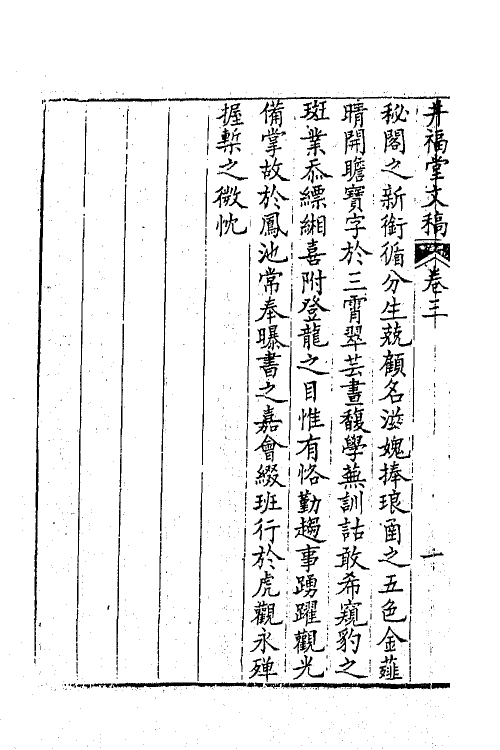 井福堂文稿 卷三 一
秘閣之新銜循分生兢顧名滋媿捧琅函之五色金薤
晴開瞻寶字於三霄翠芸晝馥學蕪訓詁敢希窺豹之
斑業忝縹緗喜附登龍之目惟有恪勤趨事踴躍觀光
備掌故於鳳池常奉曝書之嘉會綴班行於虎觀永殫
握槧之微忱